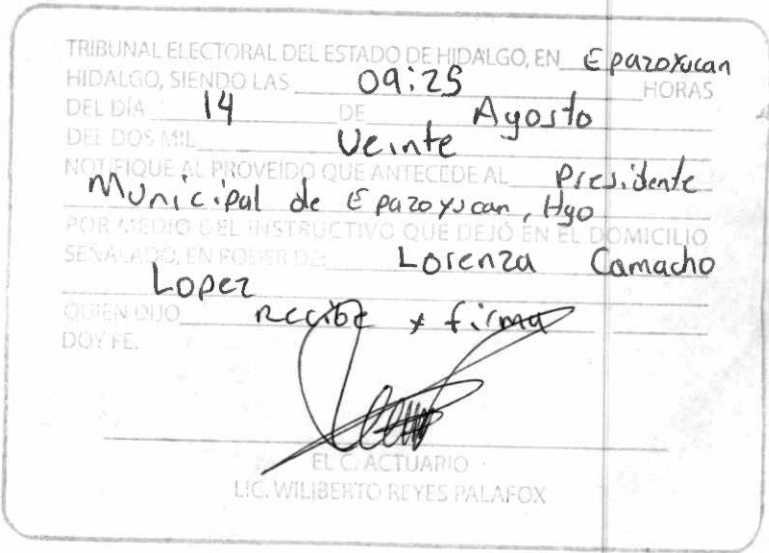 TRIBUNAL ELECTORAL DEL ESTADO DE HIDALGO, EN Epazoyucan
HIDALGO, SIENDO LAS 09:25 HORAS
DEL DÍA 14 DE Agosto
DEL DOS MIL Veinte
NOTIFIQUE AL PROVEÍDO QUE ANTECEDE AL Presidente
Municipal de Epazoyucan, Hgo
POR MEDIO DEL INSTRUCTIVO QUE DEJÓ EN EL DOMICILIO
SEÑALADO, EN PODER DE: Lorenza Camacho
Lopez
QUIEN DIJO recibe y firma
DOY FE.
EL C. ACTUARIO
LIC. WILIBERTO REYES PALAFOX